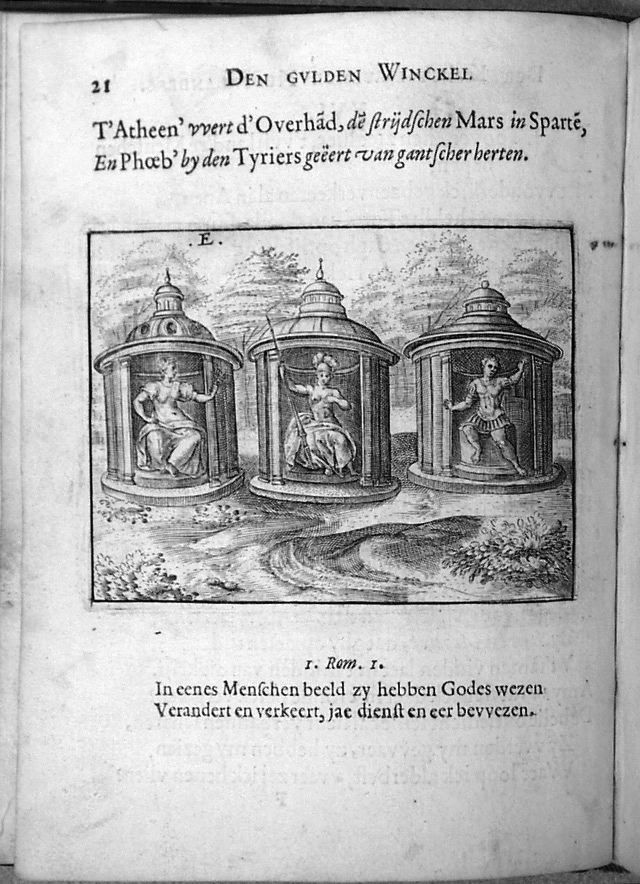 21 DEN GVLDEN WINCKEL
T'Atheen' vvert d'Overhãd, dẽ ſtrijdſchen Mars in Spartẽ,
En Phœb' by den Tyriers geëert van gantſcher herten.
.E.
1. Rom. 1.
In eenes Menſchen beeld zy hebben Godes wezen
Verandert en verkeert, jae dienſt en eer bevvezen.